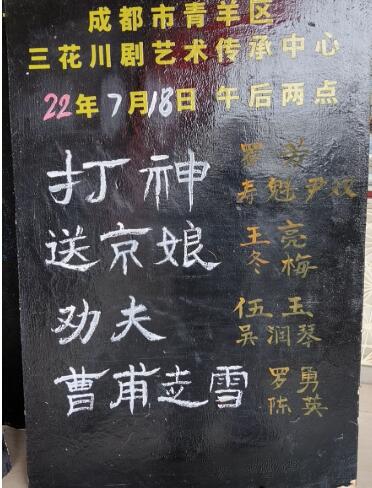 成都市青羊区
三花川剧艺术传承中心
22年7月18日 午后两点
打神
寿魁尹汉
送京娘 王亮
冬梅
劝夫 伍玉
吴润琴
曹甫走雪 罗勇
陈英